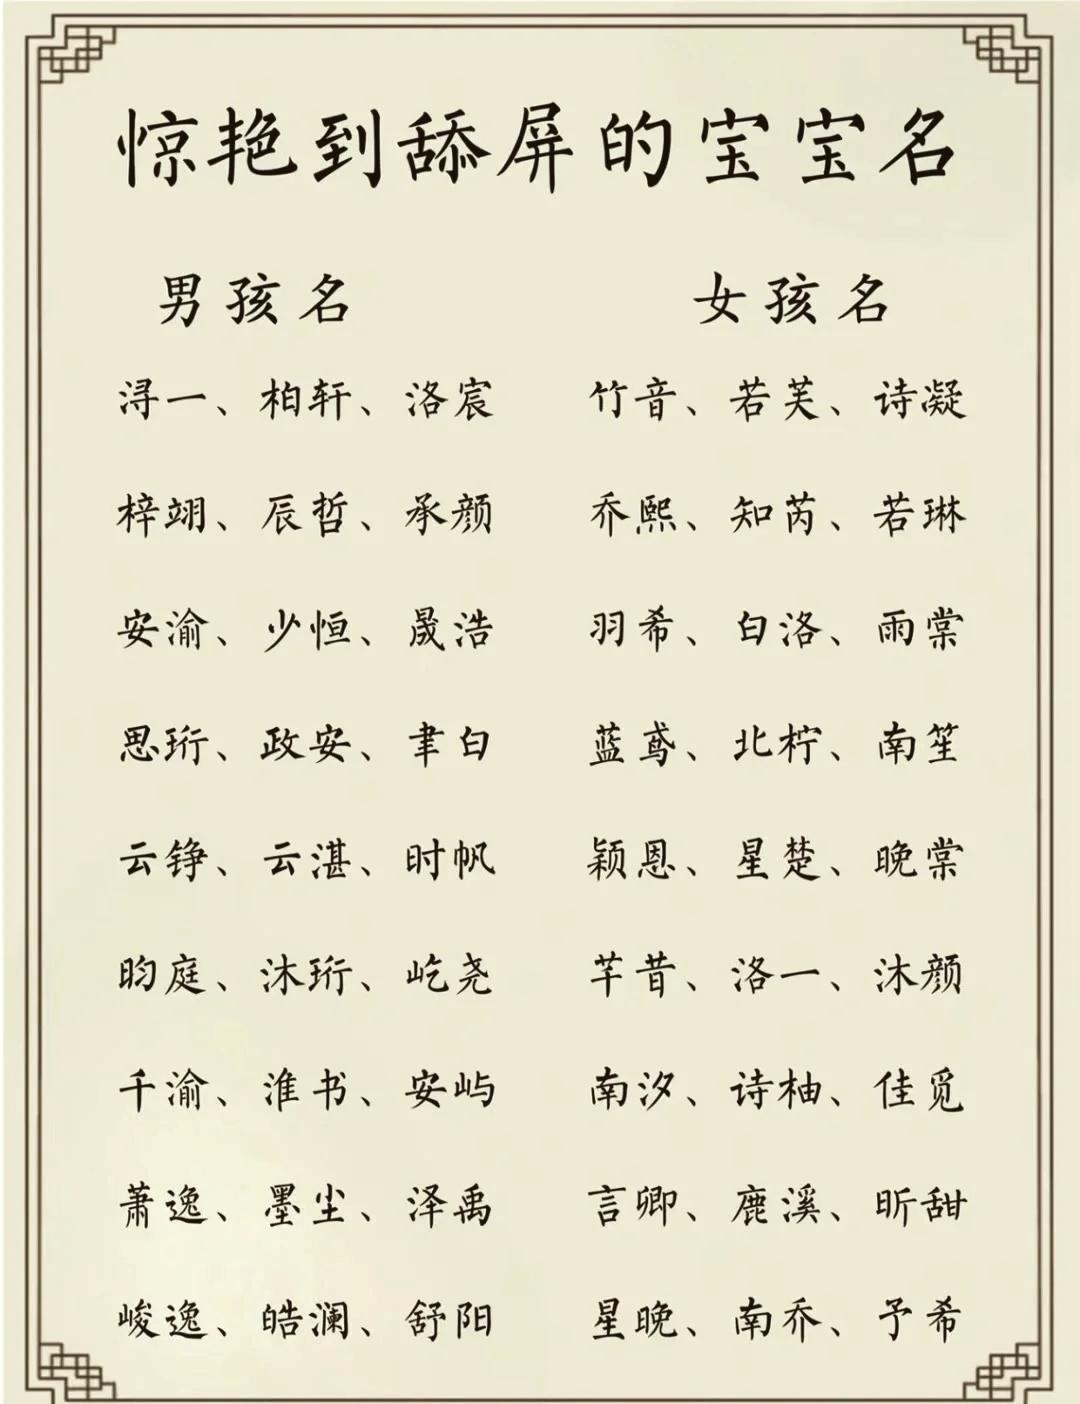 惊艳到舔屏的宝宝名
男孩名
浔一、柏轩、洛宸
梓翊、辰哲、承颜
安渝、少恒、晟浩
思珩、政安、聿白
云铮、云湛、时帆
昀庭、沐珩、屹尧
千渝、淮书、安屿
萧逸、墨尘、泽禹
峻逸、皓澜、舒阳
女孩名
竹音、若芙、诗凝
乔熙、知芮、若琳
羽希、白洛、雨棠
蓝鸢、北柠、南笙
颖恩、星楚、晚棠
芊昔、洛一、沐颜
南汐、诗柚、佳觅
言卿、鹿溪、昕甜
星晚、南乔、予希